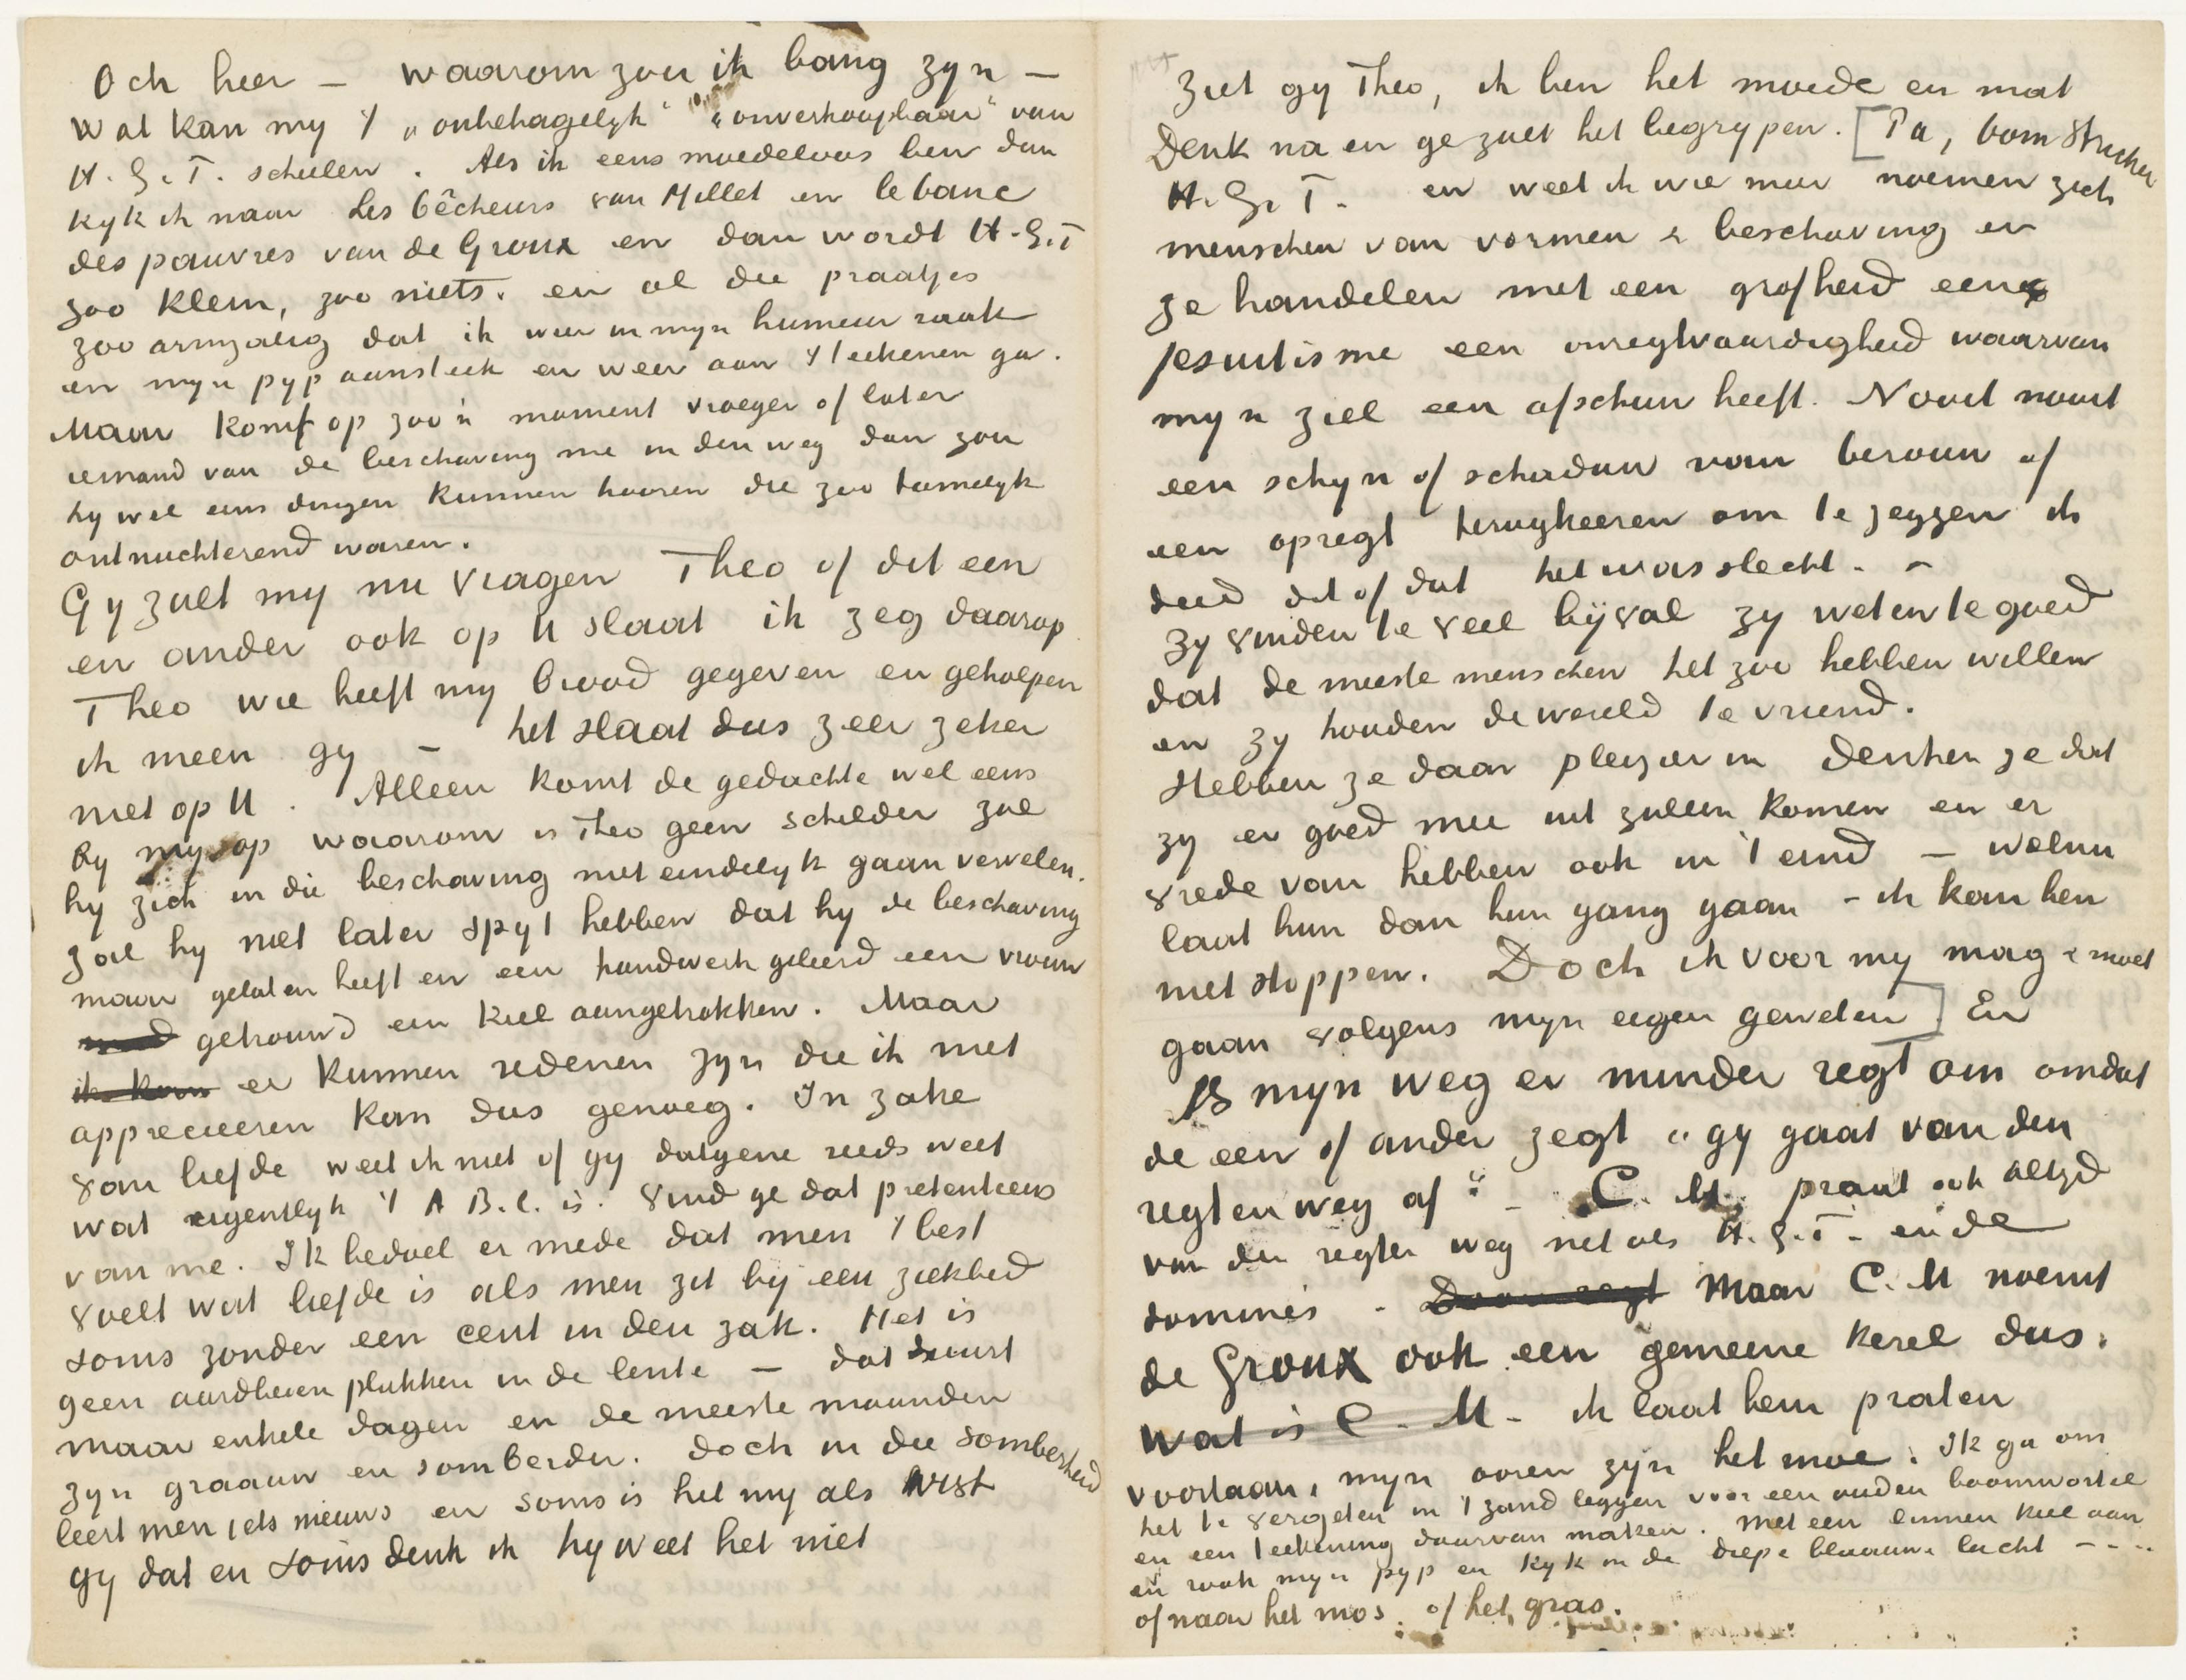 Och heer – waarom zou ik bang zyn –
Wat kan my 't „onbehagelyk" „onverkoopbaar" van
H.G.T. schelen. Als ik eens moedeloos ben dan
kyk ik naar Les bêcheurs van Millet en le banc
des pauvres van de Groux en dan wordt H.G.T
zoo klein, zoo niets. en al die praatjes
zoo armzalig dat ik weer in myn humeur raak
en myn pyp aansteek en weer aan 't teekenen ga.
Maar komt op zoo'n moment vroeger of later
iemand van de beschaving me in den weg dan zou
hy wel eens dingen kunnen hooren die zoo tamelyk
ontnuchterend waren.
Gy zult my nu vragen Theo of dit een
en ander ook op U slaat ik zeg daarop
Theo wie heeft my brood gegeven en geholpen
ik meen gy – het slaat dus zeer zeker
niet op U. Alleen komt de gedachte wel eens
by my op waarom is Theo geen schilder zal
hy zich in die beschaving niet eindelyk gaan vervelen.
zal hy niet later spyt hebben dat hy de beschaving
maar gelaten heeft en een handwerk geleerd een vrouw
getrouwd een kiel aangetrokken. Maar
ik kan er kunnen redenen zyn die ik niet
apprecieeren kan dus genoeg. In zake
van liefde weet ik niet of gy datgene reeds weet
wat eigentlyk 't A B.C. is. Vind ge dat pretentieus
van me. Ik bedoel er mede dat men 't best
voelt wat liefde is als men zit bij een ziekbed
soms zonder een cent in den zak. Het is
geen aardbeien plukken in de lente – dat duurt
maar enkele dagen en de meeste maanden
zyn graauw en somberder. doch in die somberheid
leert men iets nieuws en soms is het my als wist
gy dat en soms denk ik hy weet het niet
Ziet gy Theo, ik ben het moede en mat
Denk na en ge zult het begrypen. [Pa, oom Stricker
H.G.T. en weet ik wie meer noemen zich
menschen van vormen & beschaving en
ze handelen met een grofheid een
jesuitisme een onregtvaardigheid waarvan
myn ziel een afschuw heeft. Nooit nooit
een schyn of schaduw van berouw of
een opregt terugkeeren om te zeggen ik
deed dit of dat het was slecht. –
Zy vinden te veel bijval zy weten te goed
dat de meeste menschen het zoo hebben willen
en zy houden de wereld te vriend.
Hebben ze daar pleizier in denken ze dat
zy er goed mee uit zullen komen en er
vrede van hebben ook in 't eind – welnu
laat hun dan hun gang gaan – ik kan hen
niet stoppen. Doch ik voor my mag & moet
gaan volgens myn eigen geweten] En
Is myn weg er minder regt om omdat
de een of ander zegt „gy gaat van den
regten weg af" – C.M. praat ook altyd
van den regten weg net als H.G.T. en de
dominés. Maar C.M noemt
de Groux ook een gemeene kerel dus.
Wat is C.M – ik laat hem praten
voortaan, myn ooren zijn het moe. Ik ga om
het te vergeten in 't zand leggen voor een ouden boomwortel
en een teekening daarvan maken. Met een linnen kiel aan
en rook myn pyp en kyk in de diepe blaauwe lucht – – ..
of naar het mos. of het gras.